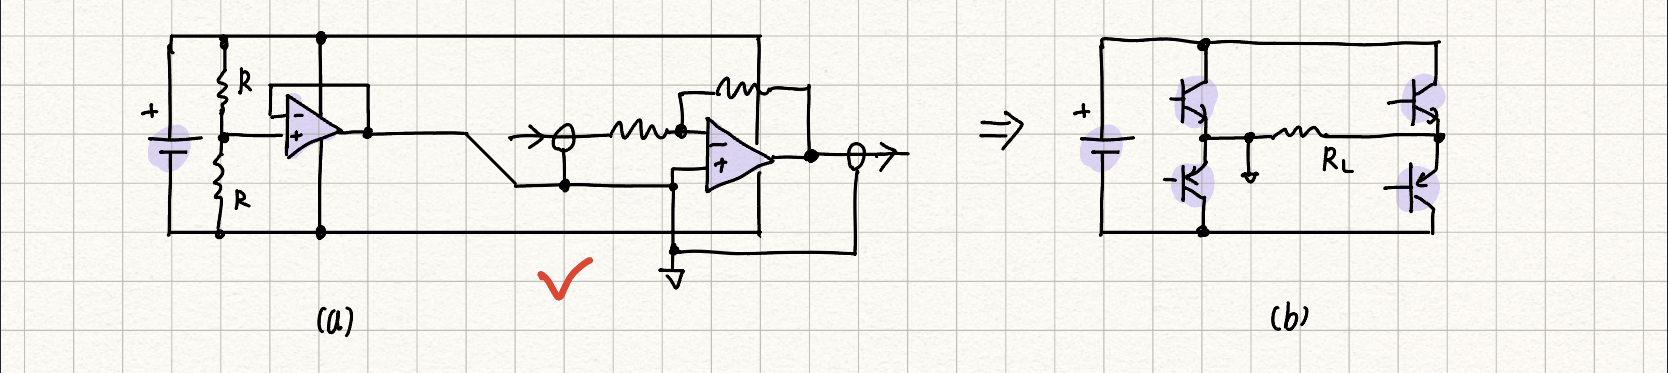 +
R
R
-
+
-
+
(a)
+
R_L
(b)